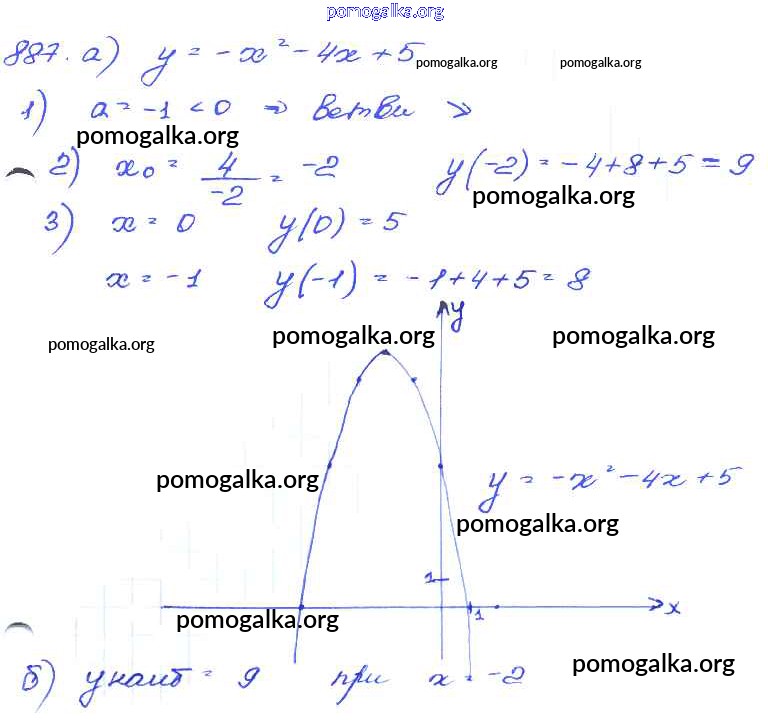 pomogalka.org
887. а) y = -x² - 4x + 5 pomogalka.org pomogalka.org
1) a = -1 < 0 ⇒ ветви
pomogalka.org
2) x₀ = 4/-2 = -2 y(-2) = -4+8+5 = 9
pomogalka.org
3) x = 0 y(0) = 5
x = -1 y(-1) = -1+4+5 = 8
y
pomogalka.org pomogalka.org pomogalka.org
pomogalka.org y = -x² - 4x + 5
pomogalka.org
1
1 x
pomogalka.org
б) y наиб = 9 при x = -2 pomogalka.org